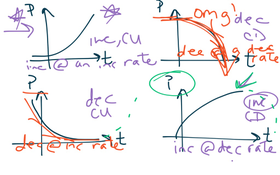 P
inc, CU
t
inc @ an inc rate
P
omg!
dec
CD
dec @ a dec
rate
t
P
dec
CU
t
dec @ inc rate
P
inc
CD
t
inc @ dec rate